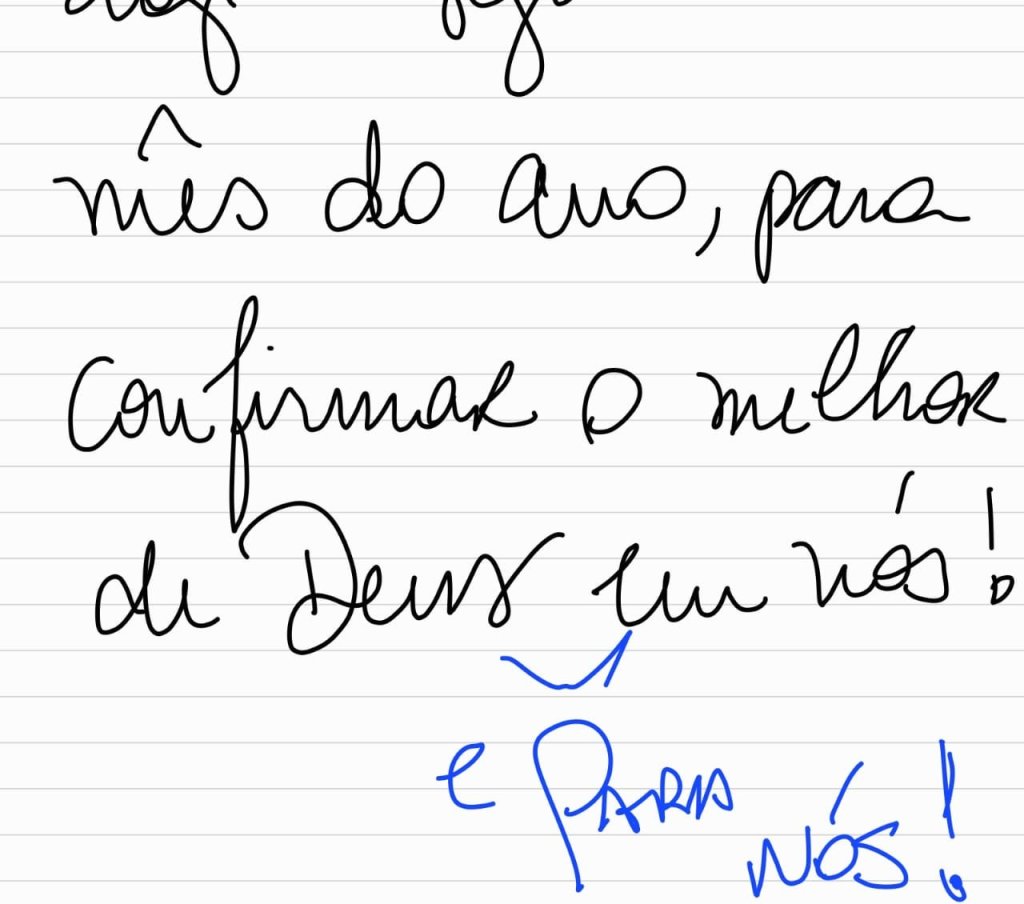 mês do ano, para
confirmar o melhor
de Deus em nós!
e PARA
NÓS!